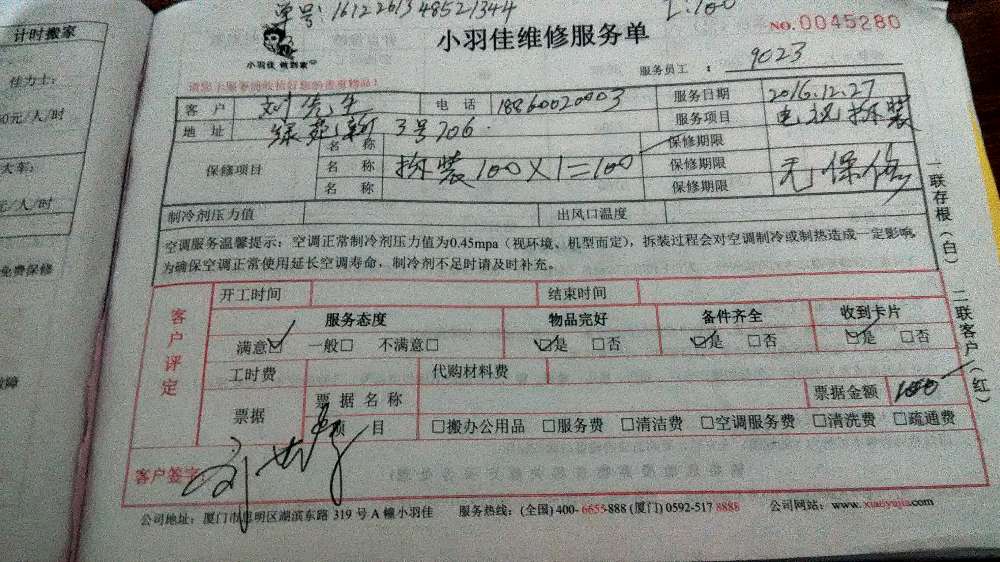 计时搬家
佳力士:
0元/人/时
大车:
元/人/时
免费保修
单号: 161226134852 1344
1:100
小羽佳 做到家
小羽佳维修服务单
NO.0045280
服务员工: 9023
客户 刘先生 电话 18860020003 服务日期 2016.12.27
地址 3号706. 服务项目 电视拆装
保修项目 名称 保修期限
名称 拆装100×1=100 保修期限 无保修
名称 保修期限
制冷剂压力值 出风口温度
空调服务温馨提示:空调正常制冷剂压力值为0.45mpa(视环境、机型而定),拆装过程会对空调制冷或制热造成一定影响,
为确保空调正常使用延长空调寿命,制冷剂不足时请及时补充。
一联存根(白) 二联客户(红)
客户评定
开工时间 结束时间
服务态度 物品完好 备件齐全 收到卡片
满意☑ 一般□ 不满意□ ☑是 □否 ☑是 □否 ☑是 □否
工时费 代购材料费
票据 票据名称 票据金额 100
项目 □搬办公用品 □服务费 □清洁费 □空调服务费 □清洗费 □疏通费
客户签字
公司地址:厦门市思明区湖滨东路 319 号 A 幢小羽佳 服务热线:(全国) 400-6655-888 (厦门) 0592-517 8888 公司网站:www.xiaoyujia.com